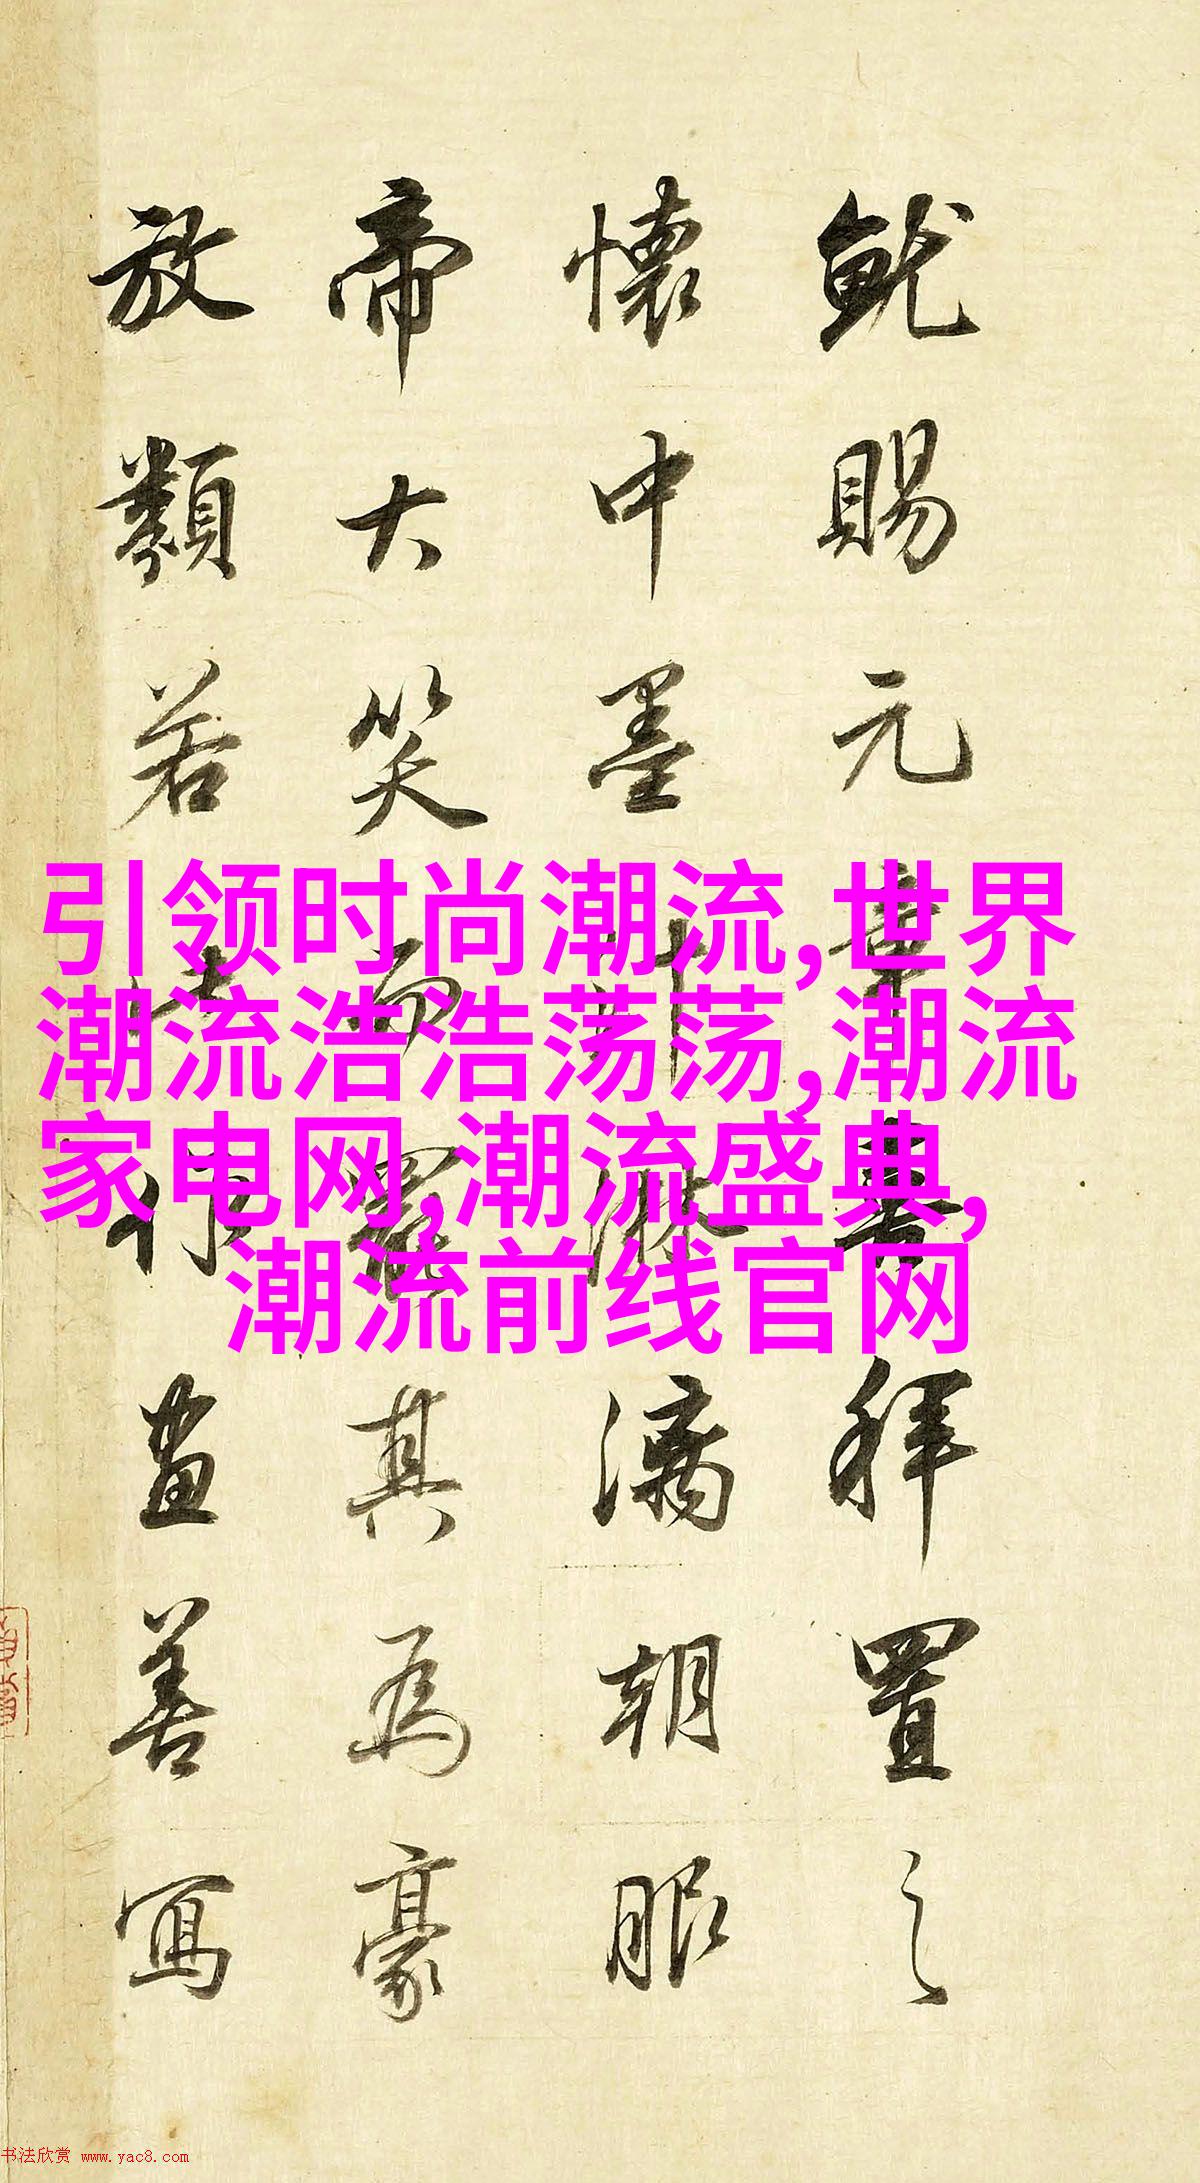 就賜元章拜置之
懷中墨汁淋漓朝服
帝大笑而罷其為豪
放類若此作畫善寫
引领时尚潮流,世界
潮流浩浩荡荡,潮流
家电网,潮流盛典,
潮流前线官网
书法欣赏 www.yac8.com